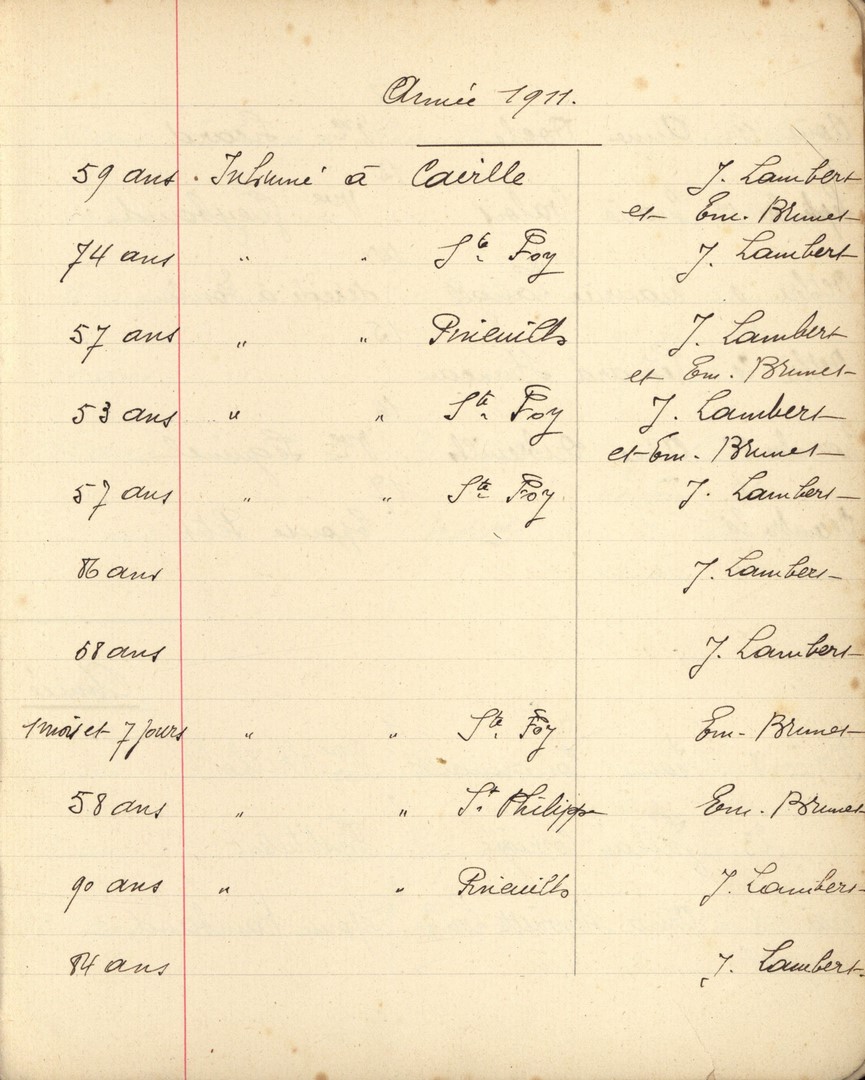 Année 1911.
59 ans . Inhumé à Caërlle J. Lambert
et Em. Brunet
74 ans " " Ste Foy J. Lambert
57 ans " " Pineuilh J. Lambert
et Em. Brunet
53 ans " " Ste Foy J. Lambert
et Em. Brunet
57 ans " " Ste Foy J. Lambert
86 ans J. Lambert
58 ans J. Lambert
1 mois et 7 jours " " Ste Foy Em. Brunet
58 ans " " St Philippe Em. Brunet
90 ans " " Pineuilh J. Lambert
84 ans J. Lambert.